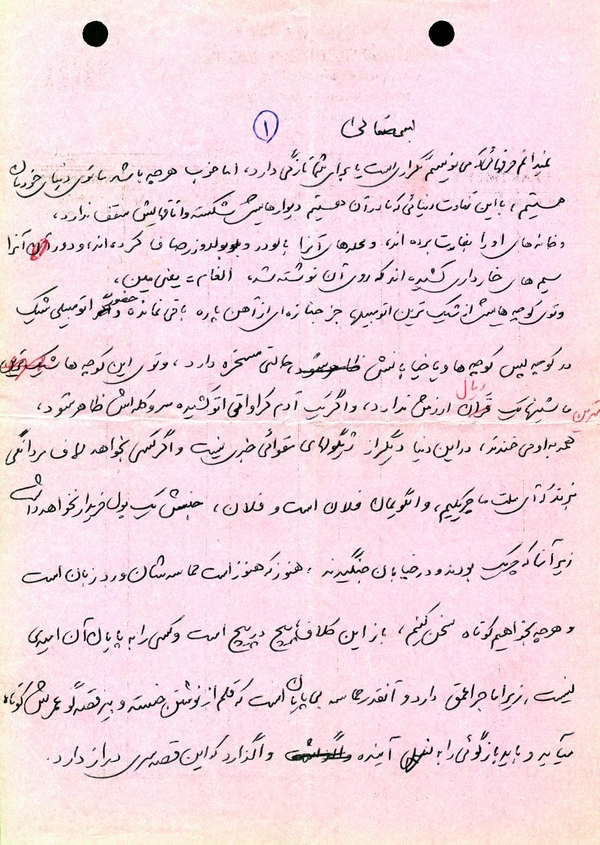 بسمه تعالی
۱
نمیدانم حرفهائی که می نویسم تکراری است یا برای شما تازگی دارد، اما خوب هر چه باشد ما توی دنیای خودمان
هستیم، با این تفاوت دنیائی که ما در آن هستیم دیوارهایش شکسته و اتاقهایش سقف ندارد،
و خانه های او را بغارت برده اند، و محله های آنرا با لودر و بولدوزر صاف کرده اند، و دور آنرا
سیم های خارداری کشیده اند که روی آن نوشته شده، الغام = یعنی مین،
و توی کوچه هایش از شیک ترین اتومبیلها جز جنازه ای از آهن پاره باقی نمانده و حضور اتومبیلی شیک
در کوچه پس کوچه ها و یا خیابانش حالتی مسخره دارد، و توی این کوچه ها شیک ترین
ماشینها یک ریال ارزش ندارد، و اگر یک آدم کراواتی اتو کشیده سر و کله اش ظاهر شود،
همه به او می خندند، در این دنیا دیگر از ژیگولهای سقوائی خبری نیست و اگر کسی بخواهد لاف مردانگی
بزند که آی ملت ما چریکیم، و انگومان فلان است و فلان، جنبش یک پول خریدار نخواهد داشت
زیرا آنها که چریک بودند و در خیابان جنگیدند، هنوز که هنوز است حماسه شان ورد زبان است
و هر چه بخواهیم کوتاه سخن کنیم، باز این کلاف پیچ در پیچ است و کسی را به پایان آن امیدی
نیست، زیرا ماجرا عمق دارد و آنقدر حماسه بی پایان است که قلم از نوشتن خسته و پیر قصه گو عمرش کوتاه
میآید و باید بازگوئی را به نسل آینده واگذارد که این قصه سری دراز دارد.